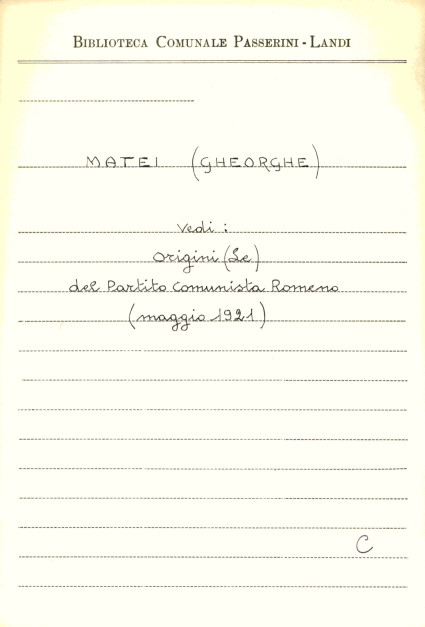 BIBLIOTECA COMUNALE PASSERINI - LANDI
MATEI (GHEORGHE)
Vedi :
Origini (Le)
del Partito Comunista Romeno
(maggio 1921)
C